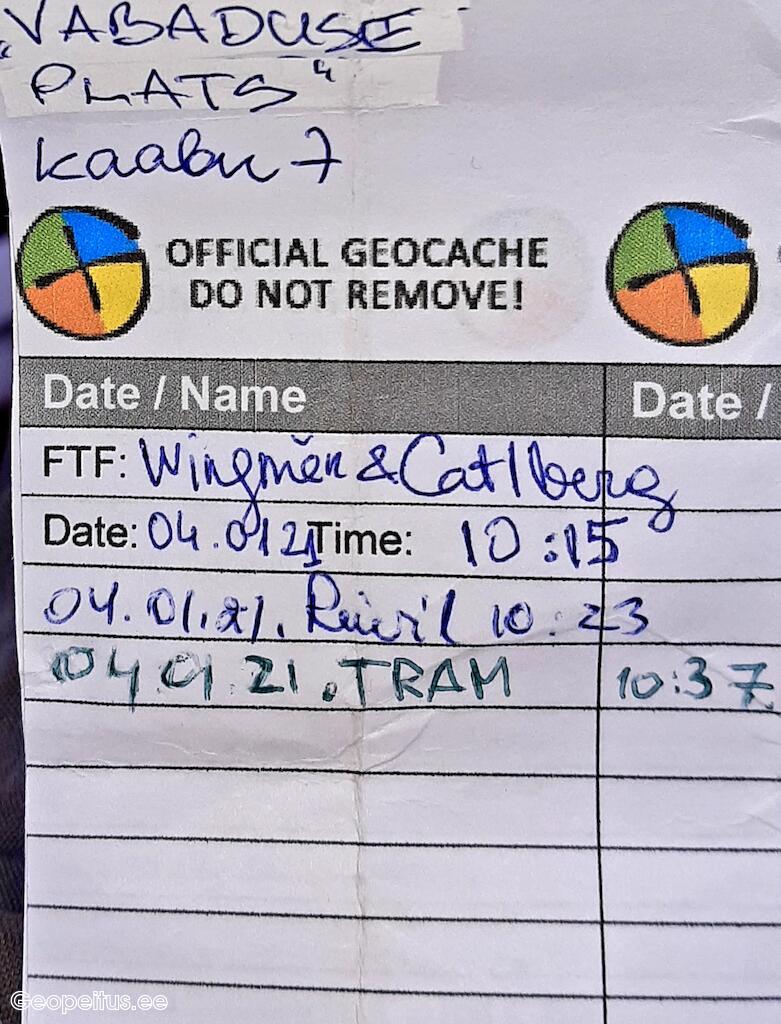 „VABADUSE
PLATS“
kaabu 7
OFFICIAL GEOCACHE
DO NOT REMOVE!
Date / Name
Date /
FTF: Wingmän & Catlberg
Date: 04.01 21 Time: 10:15
04.01.21. 10:23
04.01.21. TRAM 10:37
Geopeitus.ee